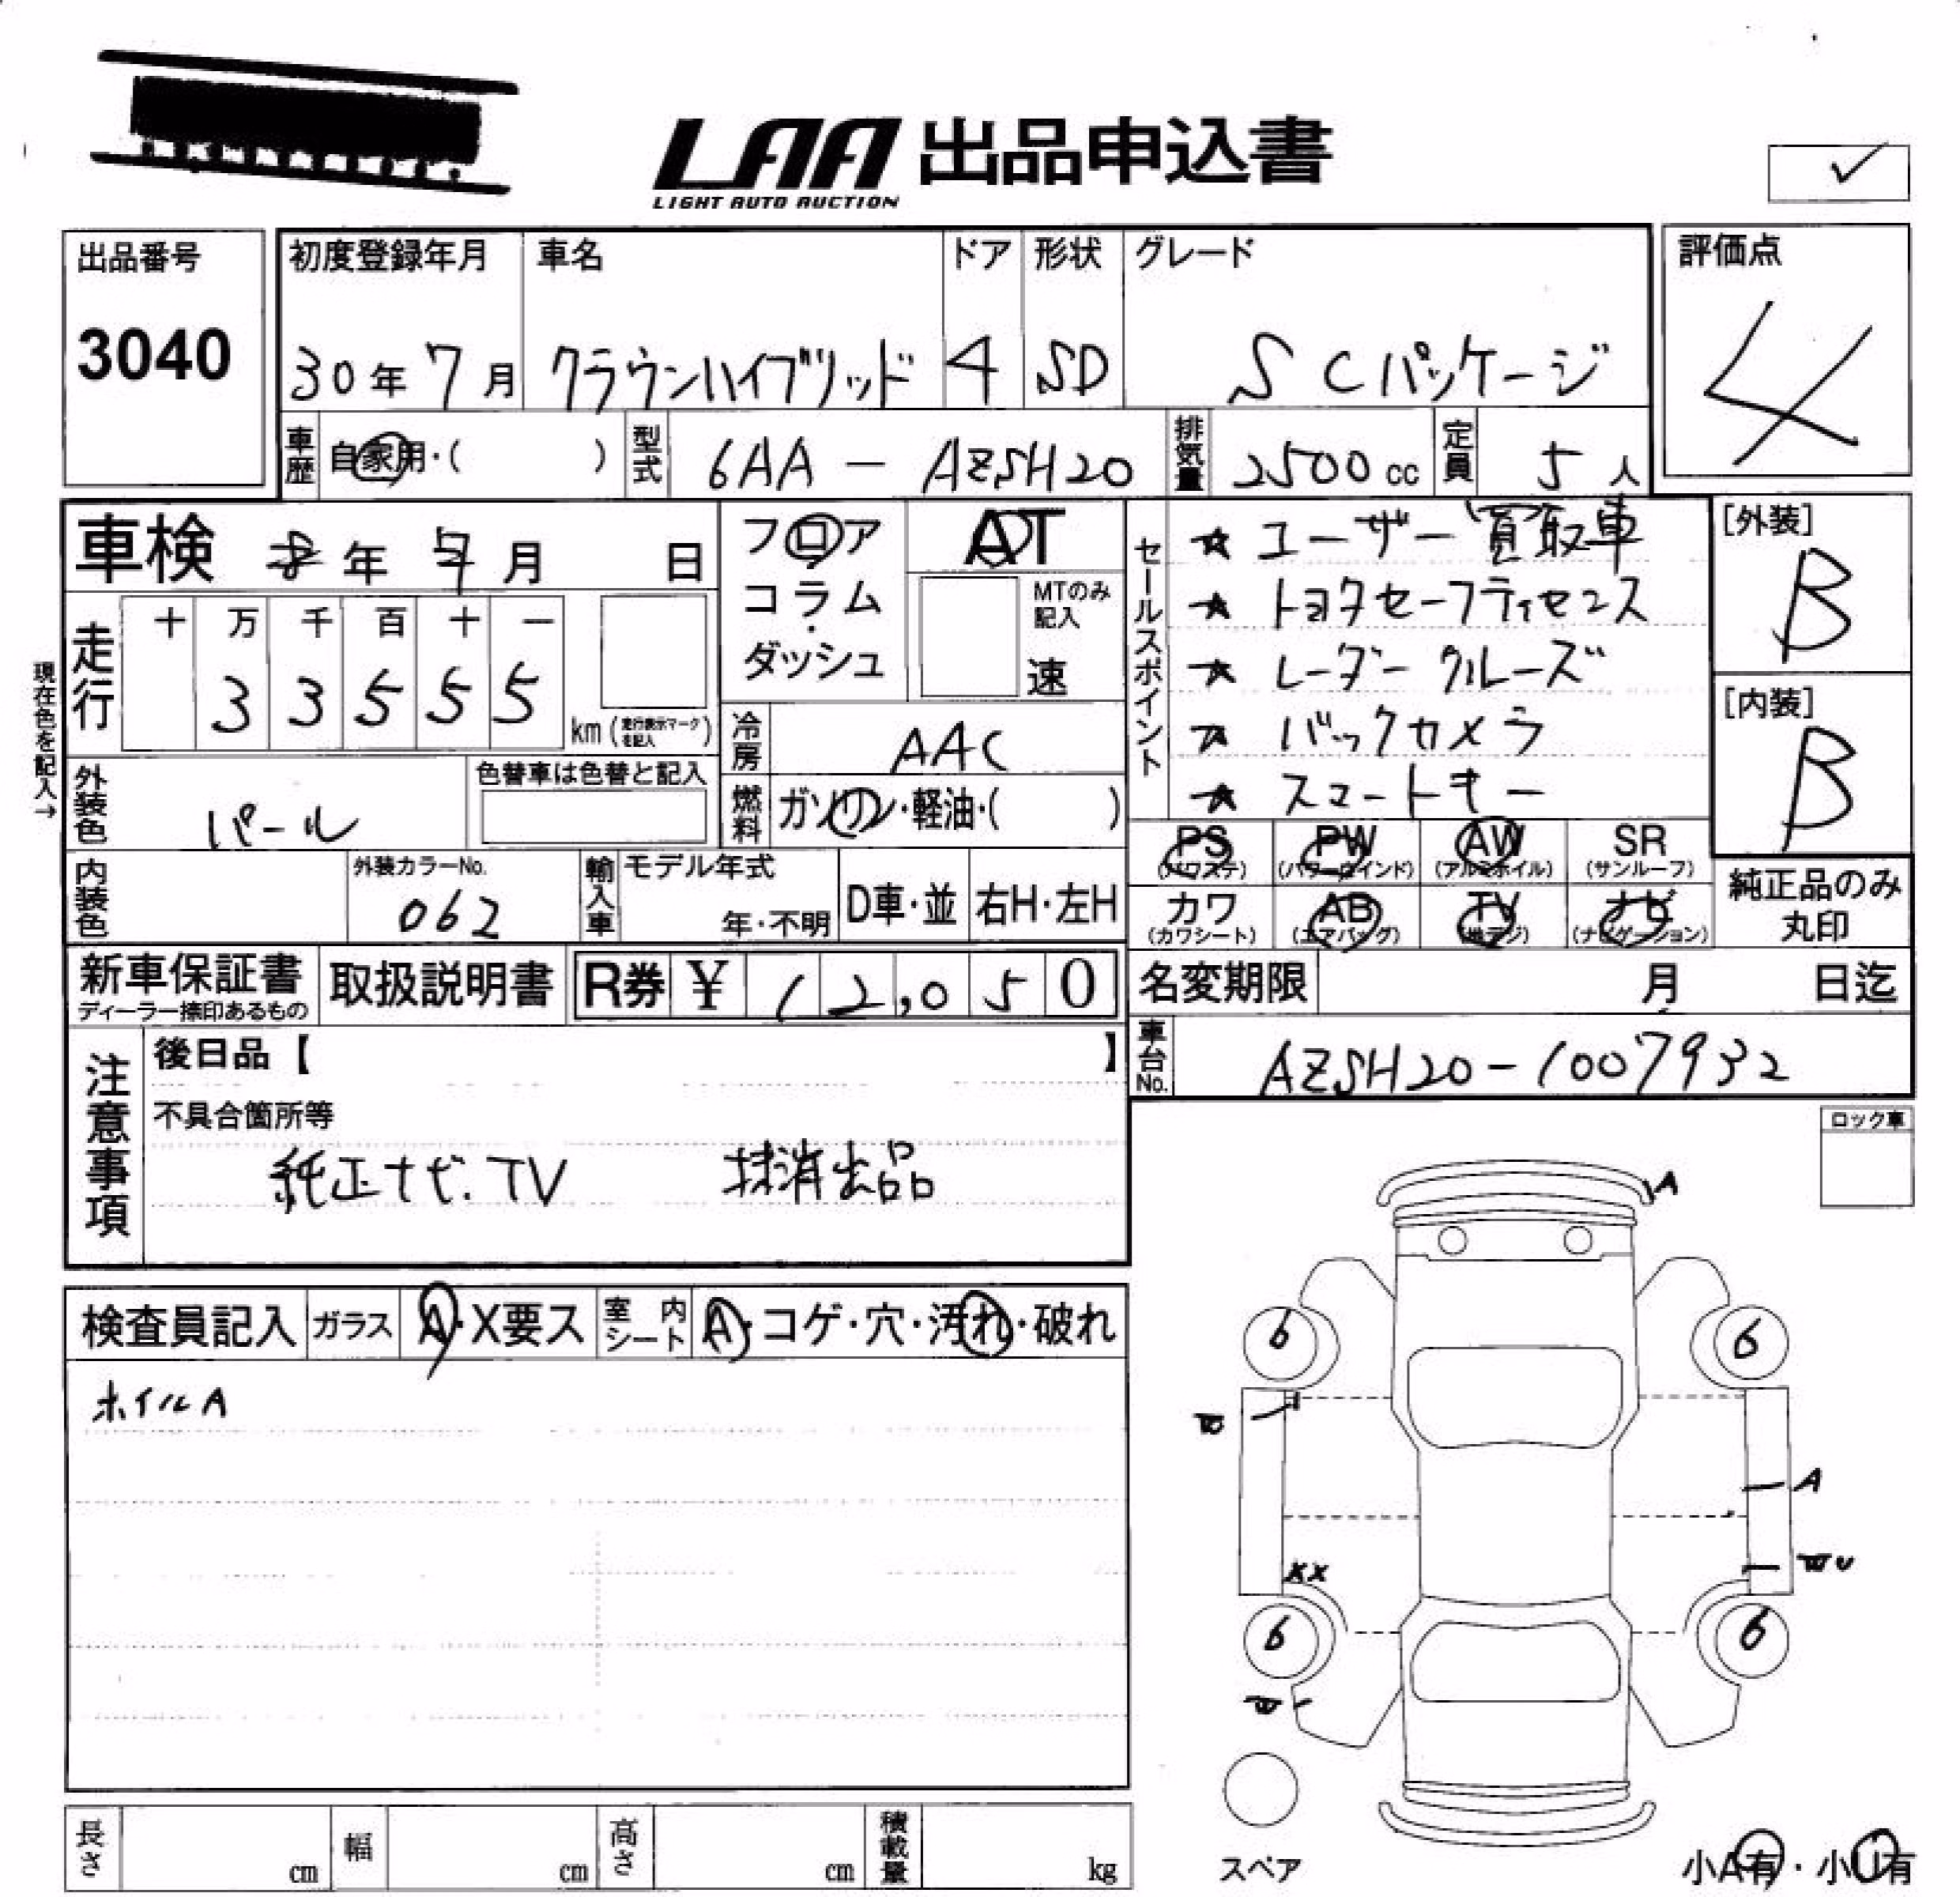 LAA 出品申込書
LIGHT AUTO AUCTION
出品番号 初度登録年月 車名 ドア 形状 グレード 評価点
3040 30年7月 クラウンハイブリッド 4 SD S Cパッケージ 4
車歴 自家用・( ) 型式 6AA - AZSH20 排気量 2500cc 定員 5人
車検 年 月 日
フロア
コラム・
ダッシュ
AT
MTのみ
記入
速
セールスポイント
★ ユーザー買取車
★ トヨタセーフティセンス
★ レーダークルーズ
★ バックカメラ
★ スマートキー
[外装]
B
[内装]
B
現在色を記入→
走行 十 万 千 百 十 一
3 3 5 5 5
km (走行表示マークを記入)
冷房 AAC
外装色 パール 色替車は色替と記入
燃料 ガソリン・軽油・( )
PS PW AW SR
(パワステ) (パワーウインド) (アルミホイル) (サンルーフ)
カワ AB TV ナビ
(カワシート) (エアバッグ) (地デジ) (ナビゲーション)
純正品のみ
丸印
内装色 外装カラーNo.
062
輸入車 モデル年式
年・不明 D車・並 右H・左H
新車保証書
ディーラー捺印あるもの
取扱説明書 R券 ¥ 12,050
名変期限 月 日迄
車台No. AZSH20-1007932
注意事項
後日品【 】
不具合箇所等
純正ナビ.TV 抹消出品
ロック車
検査員記入 ガラス A・X要ス 室内シート A・コゲ・穴・汚れ・破れ
ホイルA
A
6 6
A
XX
6 6
スペア
小A有・小U有
長さ cm 幅 cm 高さ cm 積載量 kg